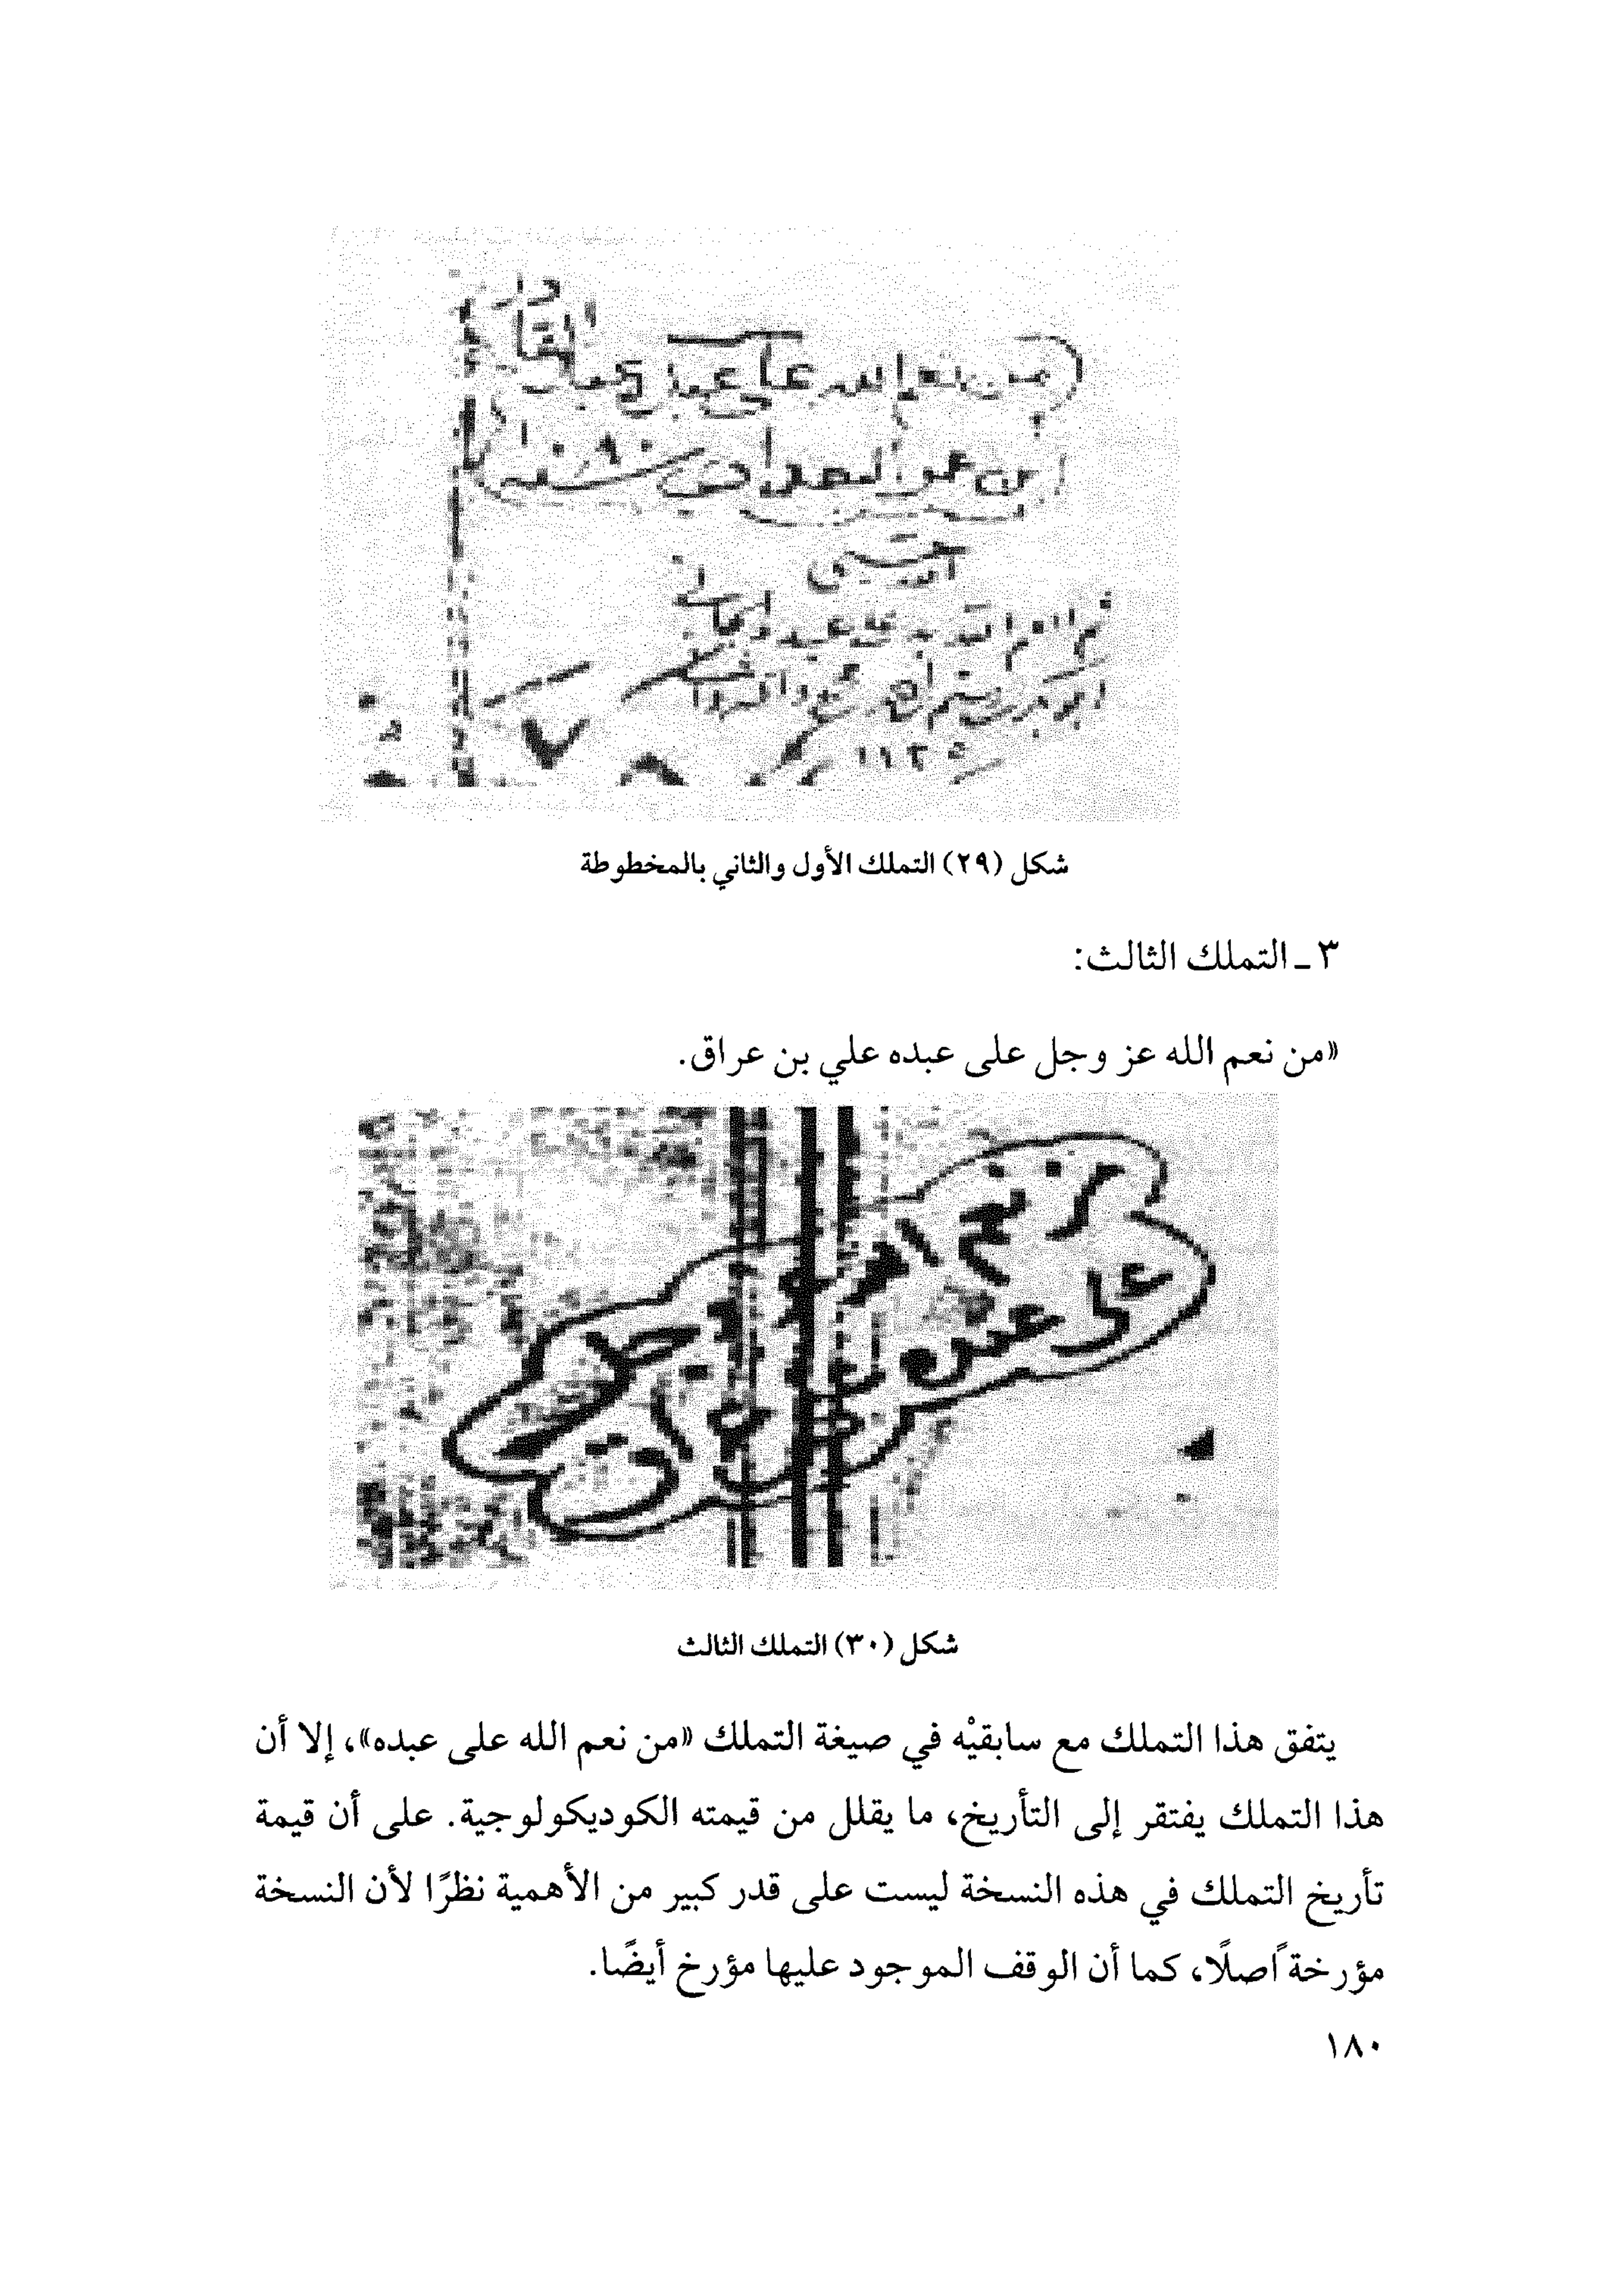 من نعم الله على عبده
بن عمر
١٠٩٠
نعم الله على عبده
١١٢
شكل (٢٩) التملك الأول والثاني بالمخطوطة
٣ ـ التملك الثالث:
«من نعم الله عز وجل على عبده علي بن عراق.
من نعم الله عز وجل
على عبده علي بن عراق
شكل (٣٠) التملك الثالث
يتفق هذا التملك مع سابقيْه في صيغة التملك «من نعم الله على عبده»، إلا أن
هذا التملك يفتقر إلى التأريخ، ما يقلل من قيمته الكوديكولوجية. على أن قيمة
تأريخ التملك في هذه النسخة ليست على قدر كبير من الأهمية نظرًا لأن النسخة
مؤرخة ًاصلًا، كما أن الوقف الموجود عليها مؤرخ أيضًا.
١٨٠